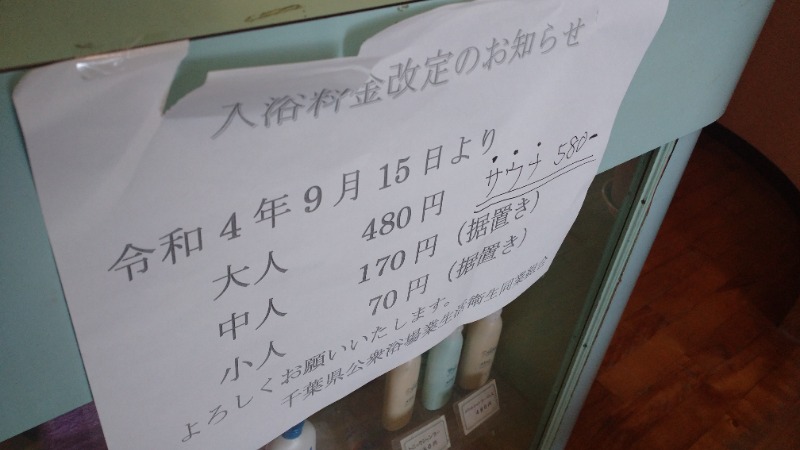 入浴料金改定のお知らせ
令和4年9月15日より
サウナ 580-
大人 480円
中人 170円（据置き）
小人 70円（据置き）
よろしくお願いいたします。
千葉県公衆浴場業生活衛生同業組合